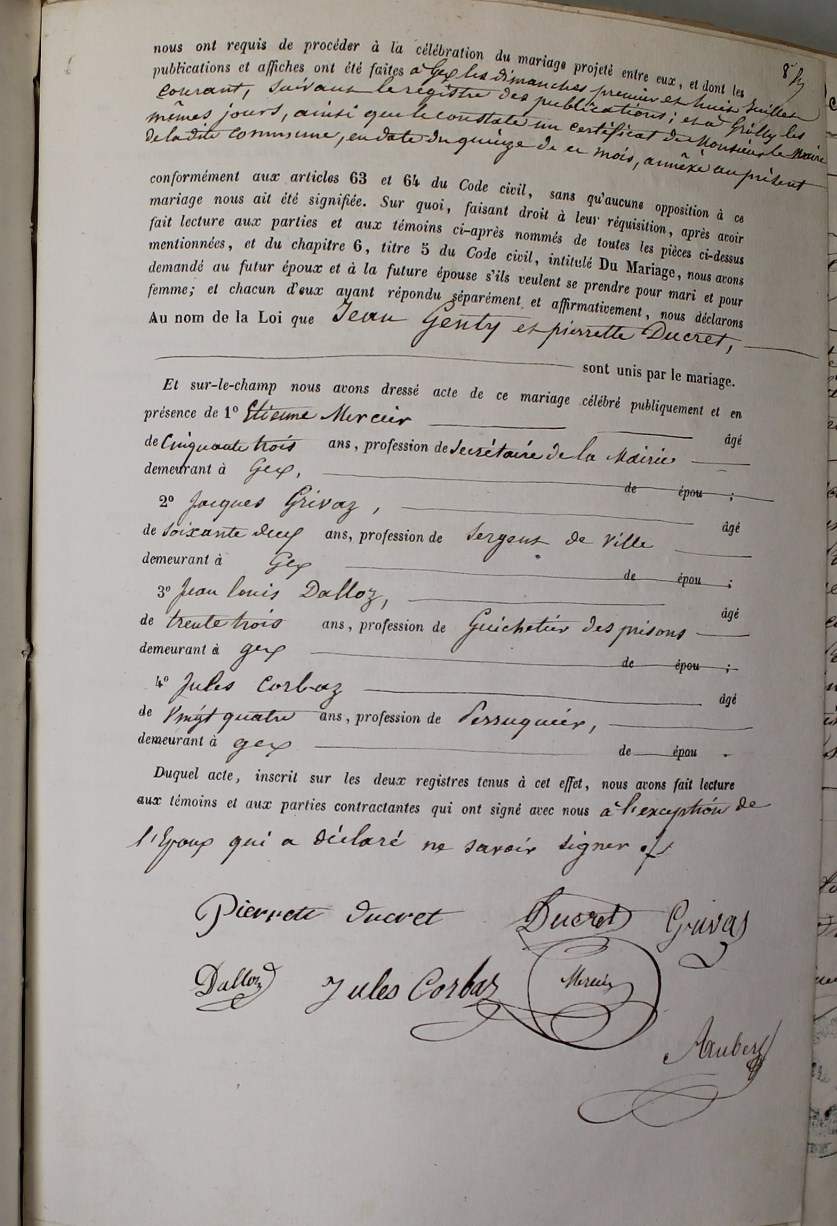 nous ont requis de procéder à la célébration du mariage projeté entre eux, et dont les
publications et affiches ont été faites à Gex les dimanches premier et huit Juillet
courant, suivant le registre des publications; et à Grilly les
mêmes jours, ainsi que le constate un certificat de Monsieur le Maire
de la dite commune, en date du quinze de ce mois, annéxé au présent
conformément aux articles 63 et 64 du Code civil, sans qu'aucune opposition à ce
mariage nous ait été signifiée. Sur quoi, faisant droit à leur réquisition, après avoir
fait lecture aux parties et aux témoins ci-après nommés de toutes les pièces ci-dessus
mentionnées, et du chapitre 6, titre 5 du Code civil, intitulé Du Mariage, nous avons
demandé au futur époux et à la future épouse s'ils veulent se prendre pour mari et pour
femme; et chacun d'eux ayant répondu séparément et affirmativement, nous déclarons
Au nom de la Loi que Jean Genty et pierrette Ducret,
sont unis par le mariage.
Et sur-le-champ nous avons dressé acte de ce mariage célébré publiquement et en
présence de 1º Etienne Mercier âgé
de Cinquante trois ans, profession de secrétaire de la Mairie
demeurant à Gex, de épou ;
2º Jacques Grivaz, âgé
de soixante deux ans, profession de sergent de ville
demeurant à Gex de épou ;
3º Jean louis Dalloz, âgé
de trente trois ans, profession de Guichetier des prisons
demeurant à gex de épou ;
4º Jules Corbaz âgé
de vingt quatre ans, profession de Perruquier,
demeurant à gex de épou .
Duquel acte, inscrit sur les deux registres tenus à cet effet, nous avons fait lecture
aux témoins et aux parties contractantes qui ont signé avec nous à l'exception de
l'Epoux qui a déclaré ne savoir signer
Pierrette ducret Ducret Grivas
Dalloz Jules Corbaz Mercier